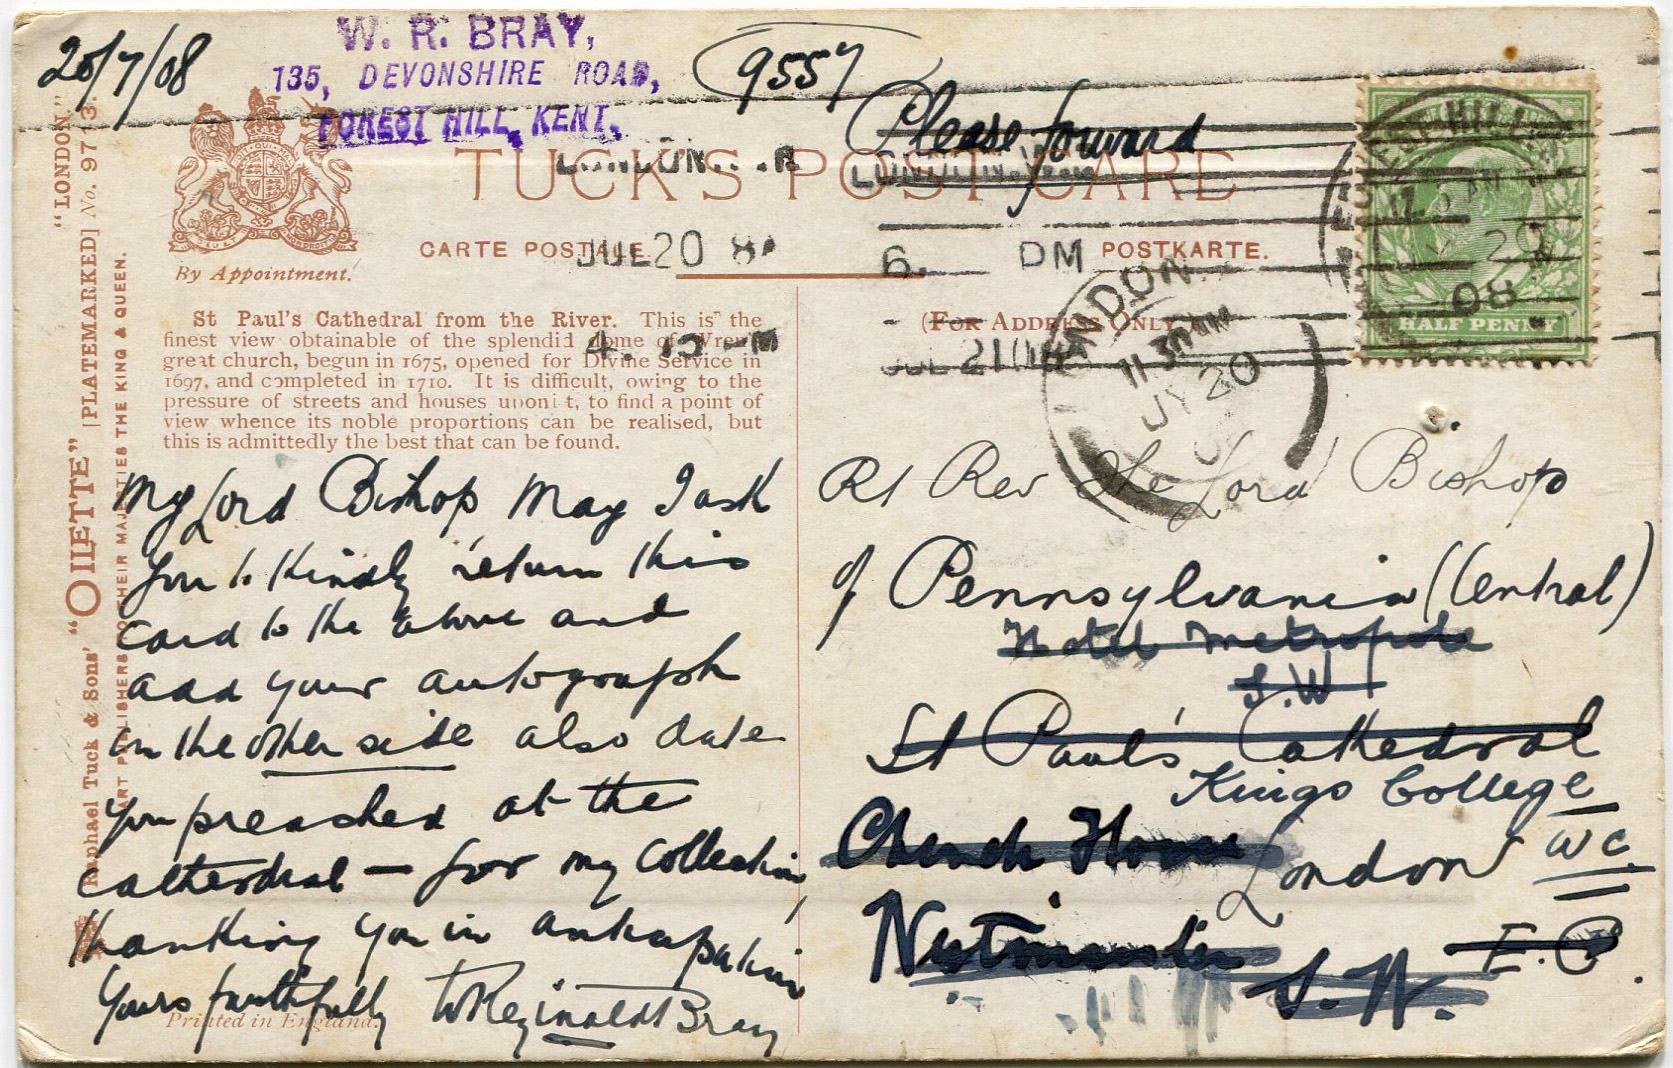 20/7/08
W. R. BRAY,
135, DEVONSHIRE ROAD,
FOREST HILL, KENT.
9557
Please forward
TUCK'S POST CARD
CARTE POSTALE
POSTKARTE.
By Appointment.
(FOR ADDRESS ONLY.)
LONDON.
JUL 20 8
4. 15 PM
LONDON.
6. PM
JUL 21 08
LONDON
11 30 AM
JY 20
08
FOREST HILL
20
08
HALF PENNY
"LONDON"
[PLATEMARKED] No. 9713.
Raphael Tuck & Sons' "OILETTE"
ART PUBLISHERS TO THEIR MAJESTIES THE KING & QUEEN.
St Paul's Cathedral from the River. This is the
finest view obtainable of the splendid dome of Wren's
great church, begun in 1675, opened for Divine Service in
1697, and completed in 1710. It is difficult, owing to the
pressure of streets and houses upon it, to find a point of
view whence its noble proportions can be realised, but
this is admittedly the best that can be found.
My Lord Bishop May I ask
you to kindly return this
card to the above and
add your autograph
on the other side also date
you preached at the
cathedral — for my collection
thanking you in anticipation
Yours faithfully W Reginald Bray
Printed in England.
Rt Rev the Lord Bishop
of Pennsylvania (Central)
Hotel Metropole
S.W
St Paul's Cathedral
Kings College
Church House
London W C
Westminster
E.C.
S.W.